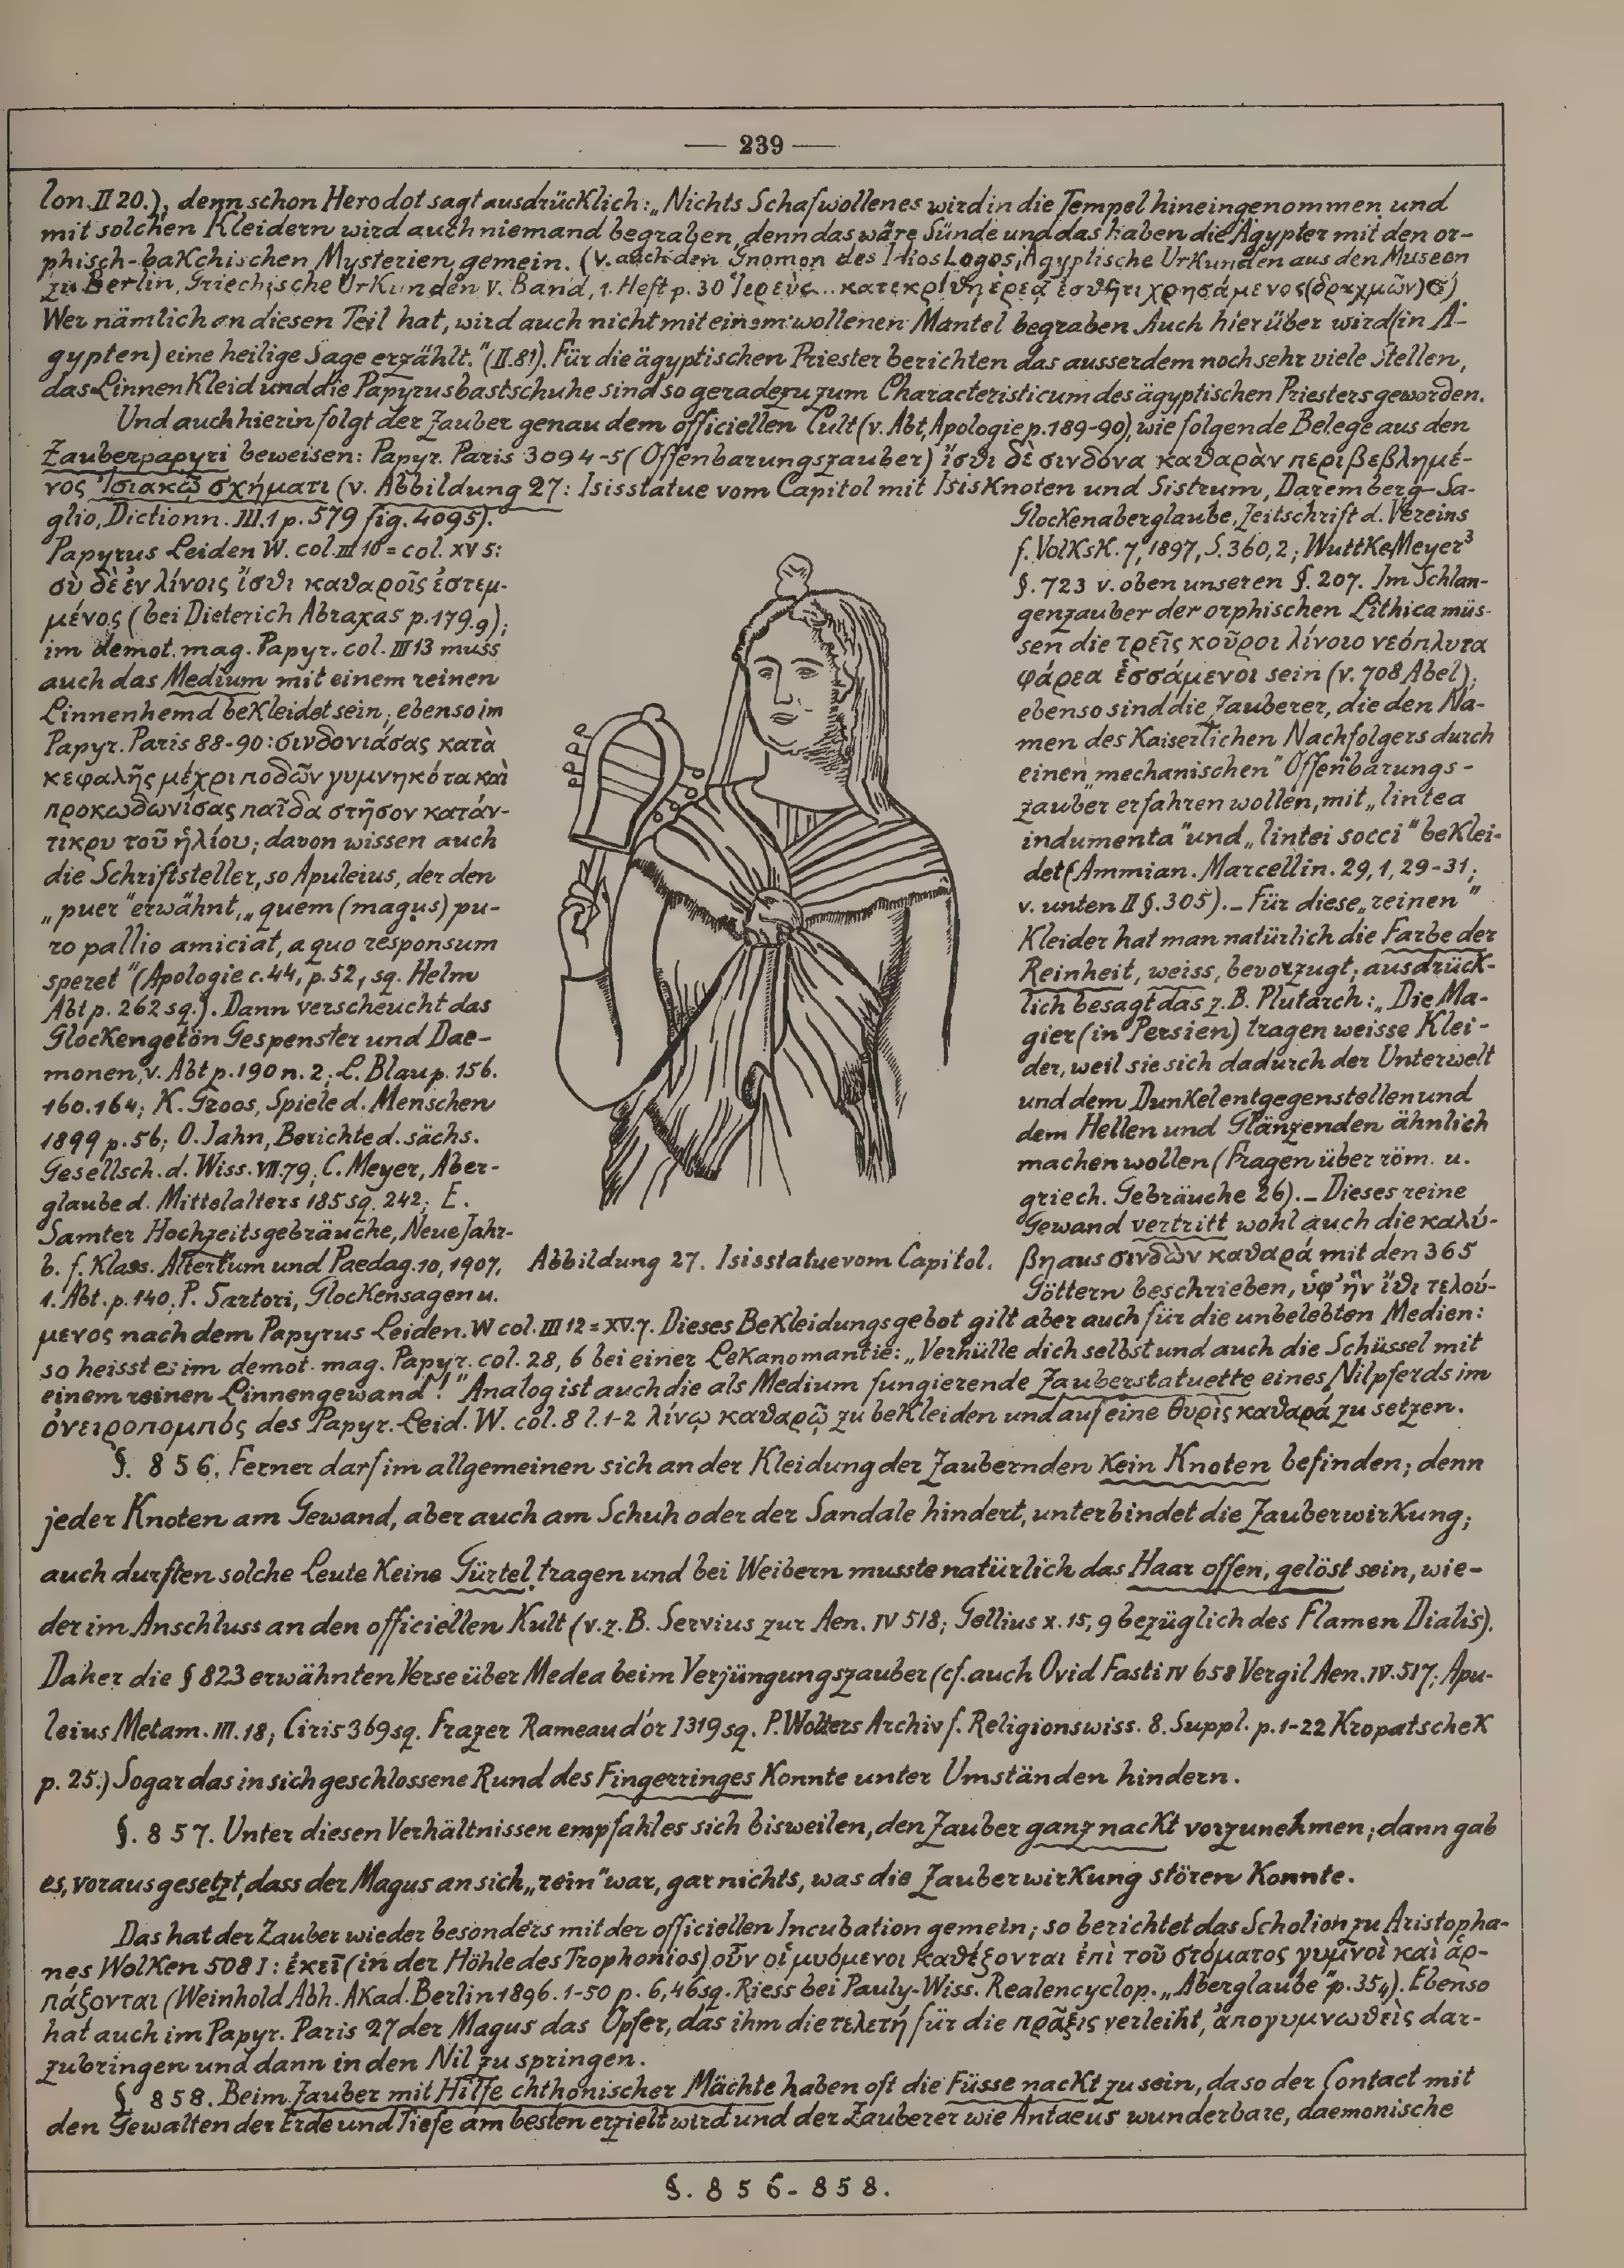 — 239 —
lon. II 20.), denn schon Herodot sagt ausdrücklich: „Nichts Schafwollenes wird in die Tempel hineingenommen und
mit solchen Kleidern wird auch niemand begraben, denn das wäre Sünde und das haben die Ägypter mit den or-
phisch-bakchischen Mysterien gemein. (v. auch den Gnomon des Idios Logos, Ägyptische Urkunden aus den Museen
zu Berlin, Griechische Urkunden V. Band, 1. Heft p. 30 Ἱερεὺς... κατεκρίθη ἐρεᾷ ἐσθῆτι χρησάμενος (δραχμῶν) σ)
Wer nämlich an diesen Teil hat, wird auch nicht mit einem wollenen Mantel begraben. Auch hierüber wird (in Ä-
gypten) eine heilige Sage erzählt." (II. 81). Für die ägyptischen Priester berichten das ausserdem noch sehr viele Stellen,
das Linnenkleid und die Papyrusbastschuhe sind so geradezu zum Characteristicum des ägyptischen Priesters geworden.
Und auch hierin folgt der Zauber genau dem officiellen Cult (v. Abt, Apologie p. 189-90), wie folgende Belege aus den
Zauberpapyri beweisen: Papyr. Paris 3094-5 (Offenbarungszauber) ἴσθι δὲ σινδόνα καθαρὰν περιβεβλημέ-
νος Ἰσιακῷ σχήματι (v. Abbildung 27: Isisstatue vom Capitol mit Isisknoten und Sistrum, Daremberg-Sa-
glio, Dictionn. III. 1 p. 579 fig. 4095).
Papyrus Leiden W. col. III 10 = col. XV 5:
σὺ δὲ ἐν λίνοις ἴσθι καθαροῖς ἐστεμ-
μένος (bei Dieterich Abraxas p. 179.9);
im demot. mag. Papyr. col. III 13 muss
auch das Medium mit einem reinen
Linnenhemd bekleidet sein; ebenso im
Papyr. Paris 88-90: σινδονιάσας κατὰ
κεφαλῆς μέχρι ποδῶν γυμνηκότα καὶ
προκωδωνίσας παῖδα στῆσον κατάν-
τικρυ τοῦ ἡλίου; davon wissen auch
die Schriftsteller, so Apuleius, der den
„puer" erwähnt, „quem (magus) pu-
ro pallio amiciat, a quo responsum
speret" (Apologie c. 44, p. 52, sq. Helm
Abt p. 262 sq.). Dann verscheucht das
Glockengetön Gespenster und Dae-
monen, v. Abt p. 190 n. 2; L. Blau p. 156.
160. 164; K. Groos, Spiele d. Menschen
1899 p. 56; O. Jahn, Berichte d. sächs.
Gesellsch. d. Wiss. VII. 79; C. Meyer, Aber-
glaube d. Mittelalters 185 sq. 242; E.
Samter Hochzeitsgebräuche, Neue Jahr-
b. f. Klass. Altertum und Paedag. 10, 1907,
1. Abt. p. 140, P. Sartori, Glockensagen u.
Abbildung 27. Isisstatue vom Capitol.
Glockenaberglaube, Zeitschrift d. Vereins
f. Volksk. 7, 1897, S. 360, 2; Wuttke Meyer³
§. 723 v. oben unseren §. 207. Im Schlan-
genzauber der orphischen Lithica müs-
sen die τρεῖς κοῦροι λίνοιο νεόπλυτα
φάρεα ἑσσάμενοι sein (v. 708 Abel);
ebenso sind die Zauberer, die den Na-
men des Kaiserlichen Nachfolgers durch
einen „mechanischen" Offenbarungs-
zauber erfahren wollen, mit „lintea
indumenta" und „lintei socci" beklei-
det (Ammian. Marcellin. 29, 1, 29-31;
v. unten II §. 305). – Für diese „reinen"
Kleider hat man natürlich die Farbe der
Reinheit, weiss, bevorzugt; ausdrück-
lich besagt das z. B. Plutarch: „Die Ma-
gier (in Persien) tragen weisse Klei-
der, weil sie sich dadurch der Unterwelt
und dem Dunkel entgegenstellen und
dem Hellen und Glänzenden ähnlich
machen wollen (Fragen über röm. u.
griech. Gebräuche 26). – Dieses reine
Gewand vertritt wohl auch die καλύ-
βη aus σινδὼν καθαρά mit den 365
Göttern beschrieben, ὑφ' ἣν ἴθι τελού-
μενος nach dem Papyrus Leiden. W col. III 12 = XV. 7. Dieses Bekleidungsgebot gilt aber auch für die unbelebten Medien:
so heisst es im demot. mag. Papyr. col. 28, 6 bei einer Lekanomantie: „Verhülle dich selbst und auch die Schüssel mit
einem reinen Linnengewand!" Analog ist auch die als Medium fungierende Zauberstatuette eines Nilpferds im
ὀνειροπομπός des Papyr. Leid. W. col. 8 l. 1-2 λίνῳ καθαρῷ zu bekleiden und auf eine θυρὶς καθαρά zu setzen.
§. 856. Ferner darf im allgemeinen sich an der Kleidung der Zaubernden kein Knoten befinden; denn
jeder Knoten am Gewand, aber auch am Schuh oder der Sandale hindert, unterbindet die Zauberwirkung;
auch durften solche Leute keine Gürtel tragen und bei Weibern musste natürlich das Haar offen, gelöst sein, wie-
der im Anschluss an den officiellen Kult (v. z. B. Servius zur Aen. IV 518; Gellius X. 15, 9 bezüglich des Flamen Dialis).
Daher die § 823 erwähnten Verse über Medea beim Verjüngungszauber (cf. auch Ovid Fasti IV 658 Vergil Aen. IV. 517; Apu-
leius Metam. III. 18; Ciris 369 sq. Frazer Rameau d'or I 319 sq. P. Wolters Archiv f. Religionswiss. 8. Suppl. p. 1-22 Kropatschek
p. 25.) Sogar das in sich geschlossene Rund des Fingerringes konnte unter Umständen hindern.
§. 857. Unter diesen Verhältnissen empfahl es sich bisweilen, den Zauber ganz nackt vorzunehmen; dann gab
es, vorausgesetzt, dass der Magus an sich „rein" war, gar nichts, was die Zauberwirkung stören konnte.
Das hat der Zauber wieder besonders mit der officiellen Incubation gemein; so berichtet das Scholion zu Aristopha-
nes Wolken 508 I: ἐκεῖ (in der Höhle des Trophonios) οὖν οἱ μυόμενοι καθέζονται ἐπὶ τοῦ στόματος γυμνοὶ καὶ ἁρ-
πάζονται (Weinhold Abh. Akad. Berlin 1896. 1-50 p. 6, 46 sq. Riess bei Pauly-Wiss. Realencyclop. „Aberglaube" p. 354). Ebenso
hat auch im Papyr. Paris 27 der Magus das Opfer, das ihm die τελετή für die πρᾶξις verleiht, ἀπογυμνωθεὶς dar-
zubringen und dann in den Nil zu springen.
§ 858. Beim Zauber mit Hilfe chthonischer Mächte haben oft die Füsse nackt zu sein, da so der Contact mit
den Gewalten der Erde und Tiefe am besten erzielt wird und der Zauberer wie Antaeus wunderbare, daemonische
§. 856-858.